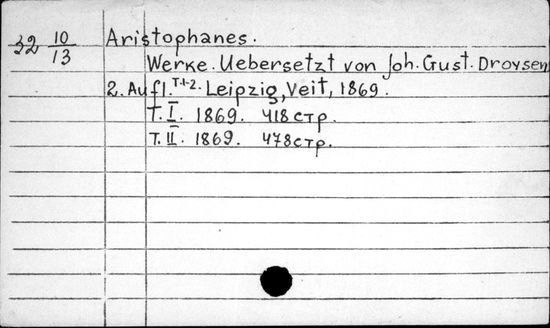 32 10/13 Aristophanes.
Werke. Uebersetzt von Joh. Gust. Droysen
2. Aufl. T.1-2. Leipzig, Veit, 1869.
T. I. 1869. 418 стр.
T. II. 1869. 478 стр.